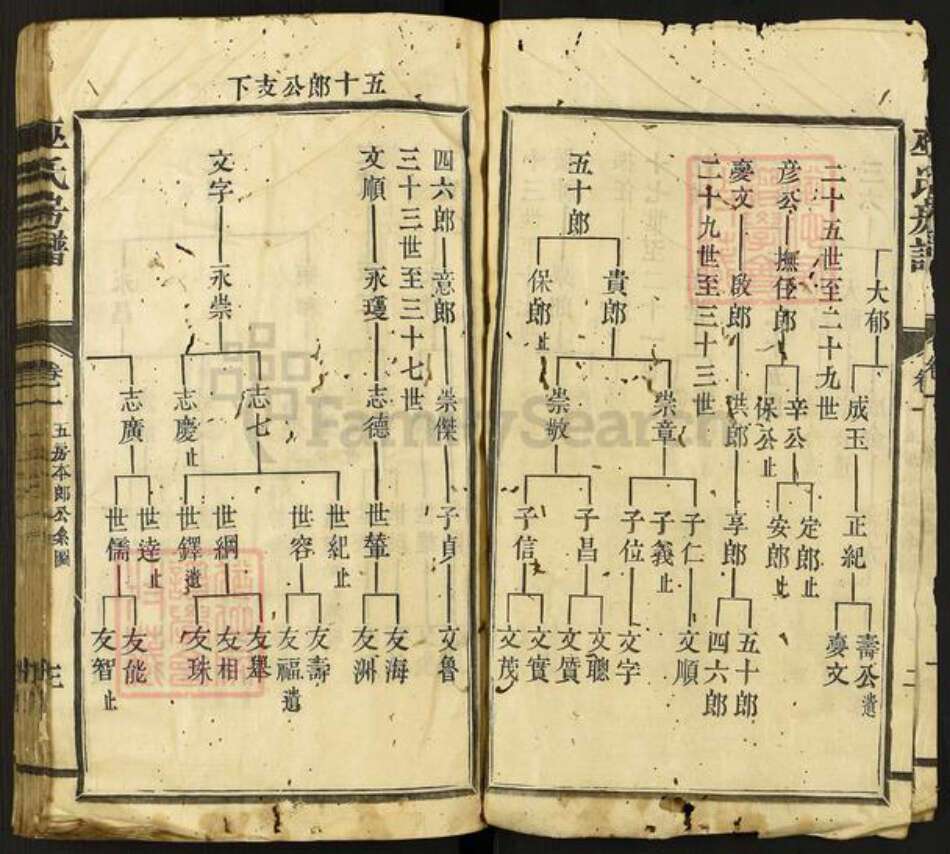 大郁
成玉
正紀
壽公遺
慶文
二十五世至二十九世
彦公
撫任郎
辛公
保公止
定郎止
安郎止
二十九世至三十三世
慶文
啟郎
洪郎
享郎
五十郎
四六郎
五十郎
貴郎
保郎止
崇章
崇敬
子仁
子義止
子位
子昌
子信
文順
文字
文聰
文質
文實
文茂
五十郎公支下
三十三世至三十七世
四六郎
意郎
崇傑
子貞
文魯
文順
永瓊
志德
世輦
友海
友洲
文字
永崇
志七
志慶止
志廣
世紀止
世容
世綱
世鐸遺
世逵止
世儒
友壽
友福遺
友舉
友相
友珠
友能
友智止
巫氏房譜
卷一
五房本郎公系圖
三
FamilySearch